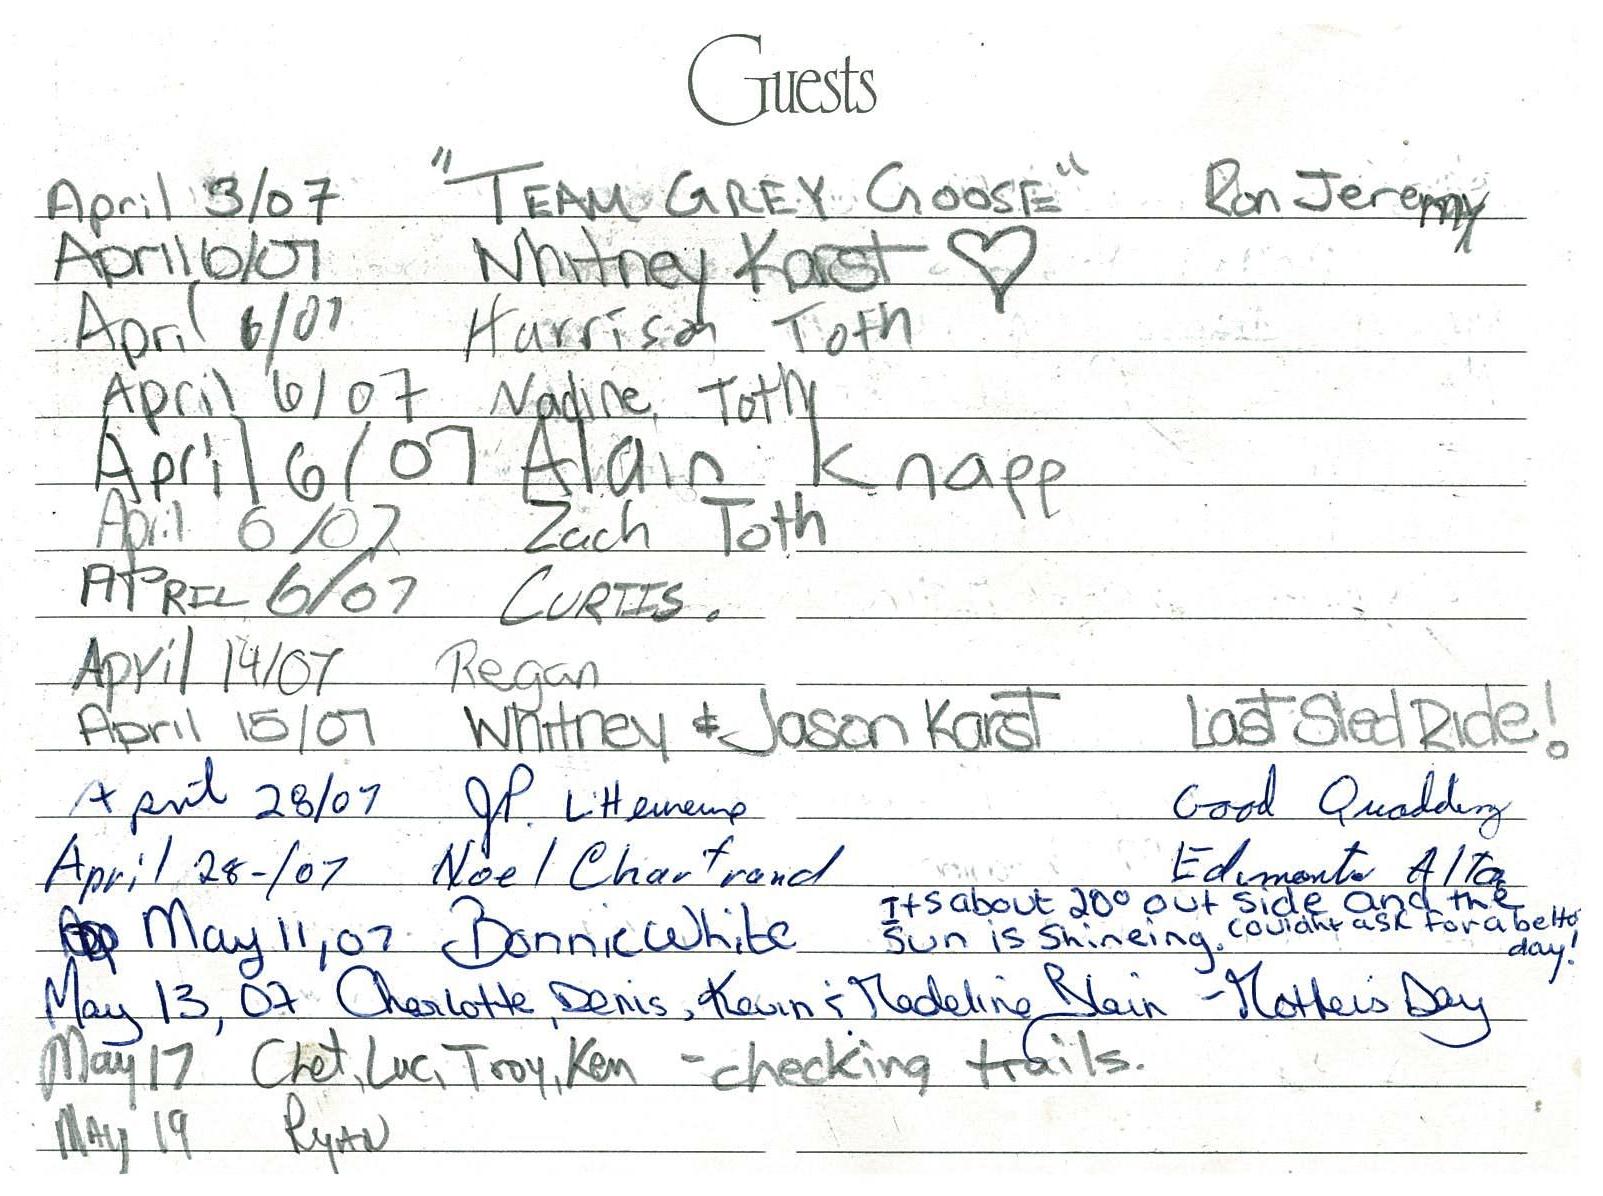 Guests
April 3/07 "TEAM GREY GOOSE" Ron Jeremy
April 6/07 Whitney Karst ♡
April 6/07 Harrison Toth
April 6/07 Nadine Toth
April 6/07 Alain Knapp
April 6/07 Zach Toth
APRIL 6/07 CURTIS.
April 14/07 Regan
April 15/07 Whitney & Jason Karst Last Sled Ride!
April 28/07 J.P. Good Quadding
April 28-/07 Noel Chartrand Edmonton Alta
May 11, 07 Bonnie White Its about 20° out side and the
sun is shineing. couldnt ask for a better
day!
May 13, 07 Charlotte, Denis, Kevin & Madeline Blain - Mother's Day
May 17 Chet, Luc, Troy, Ken - checking trails.
MAY 19 RYAN